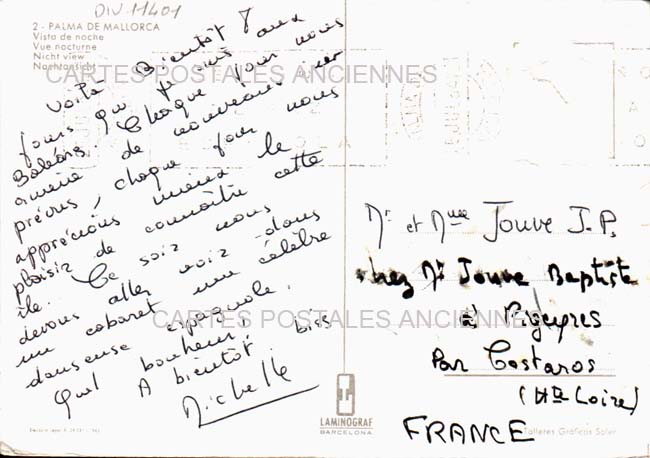 DIV-11401
2 - PALMA DE MALLORCA
Vista de noche
Vue nocturne
Nicht view
Nachtansicht
CARTES POSTALES ANCIENNES
Voilà bientôt 8 jours que je suis aux
Baléares. Chaque jour nous
amène de nouveaux
prévus, chaque jour nous
apprécions mieux le
plaisir de connaître cette
île. Ce soir nous
devons aller voir dans
un cabaret une célèbre
danseuse espagnole.
Quel bonheur.
A bientôt. biss
Michelle
Mr et Mme Jouve J.P.
chez Mr Jouve Baptiste
à Pigeyres
Par Costaros
(Hte Loire)
FRANCE
CARTES POSTALES ANCIENNES
LAMINOGRAF
BARCELONA
Talleres Gráficos Soler